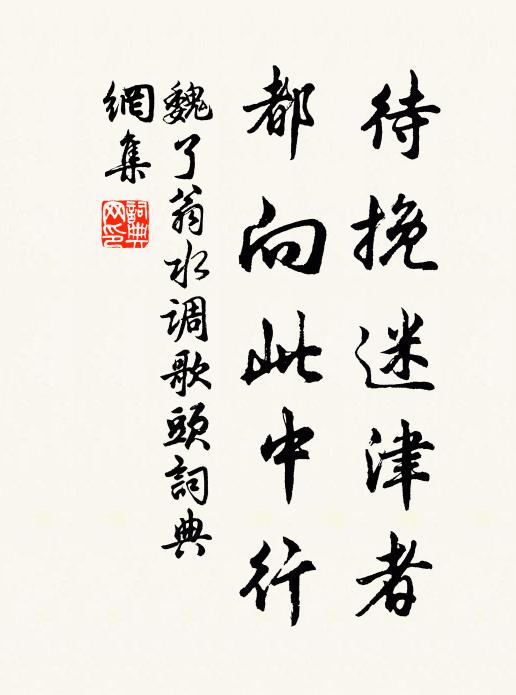 待挽迷津者
都向此中行
魏了翁水调歌頭詞典
網集
詞典網印